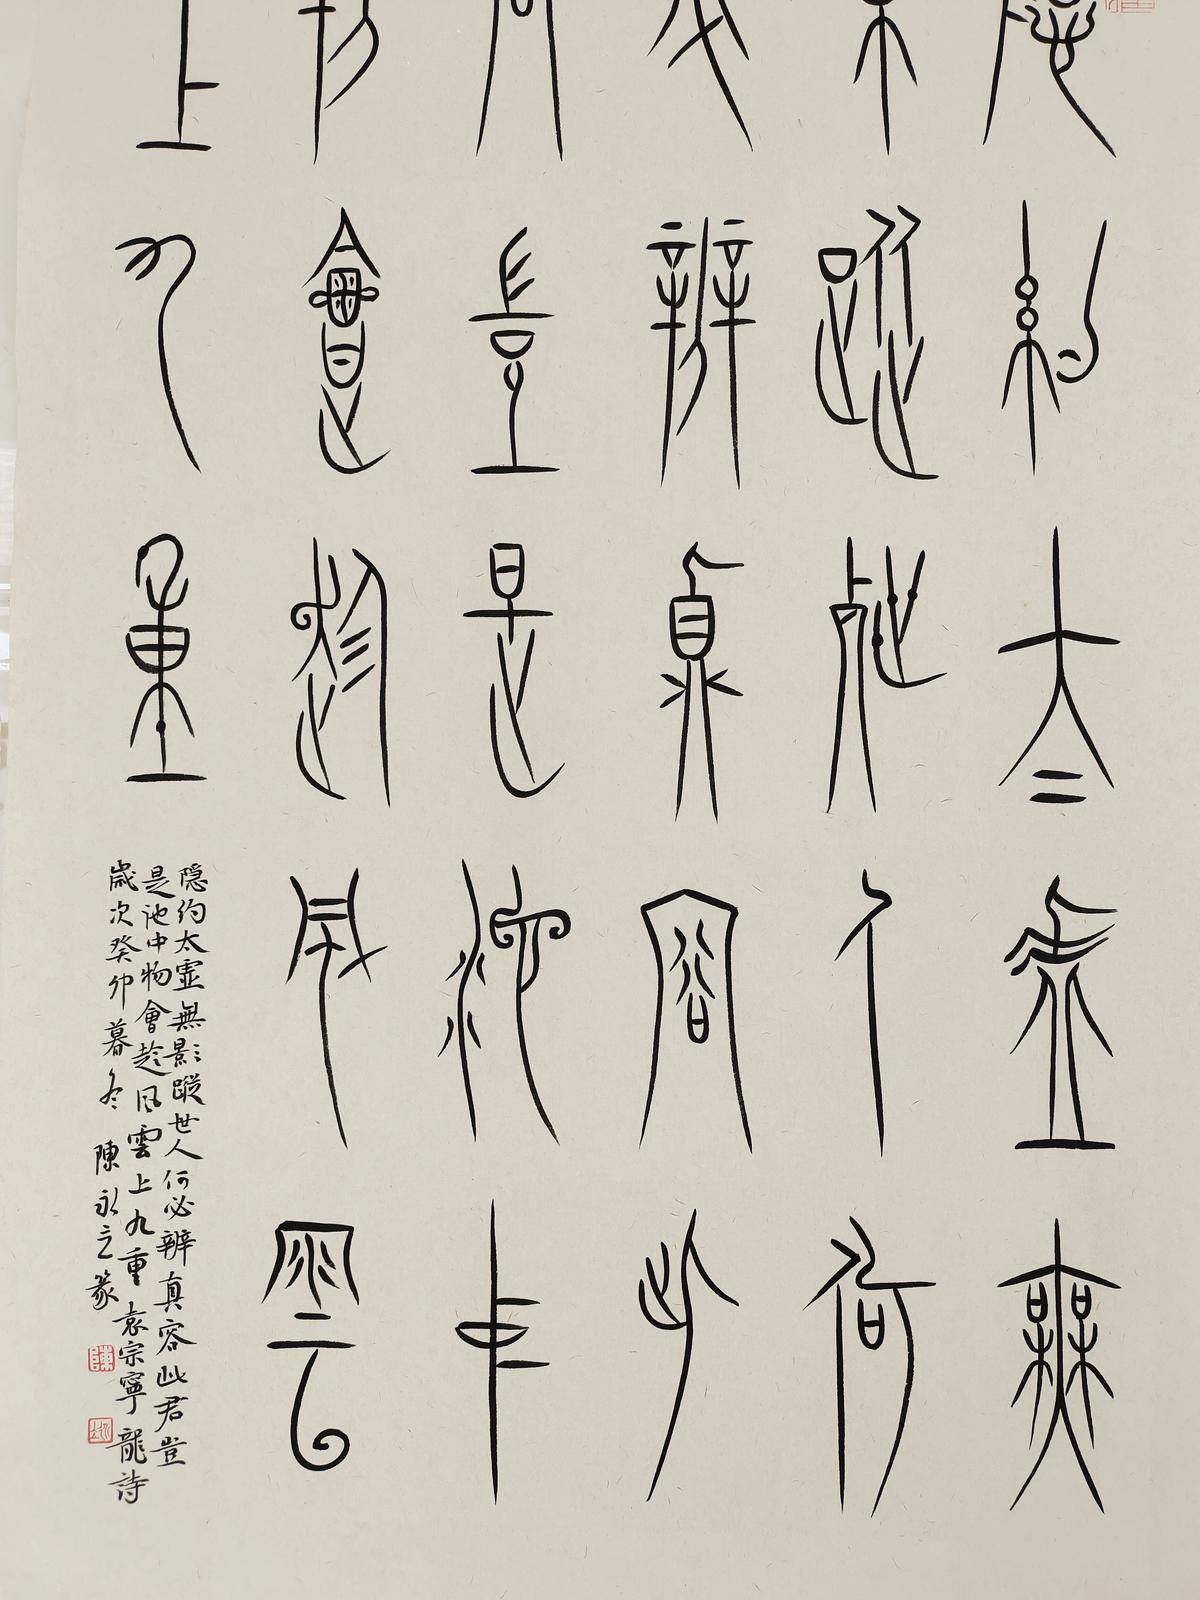 隱約太虛無
影蹤世人何
必辨真容此
君豈是池中
物會趁風雲
上九重
隱約太虛無影蹤世人何必辨真容此君豈
是池中物會趁風雲上九重 袁宗寧龍詩
歲次癸卯暮冬 陳永立篆